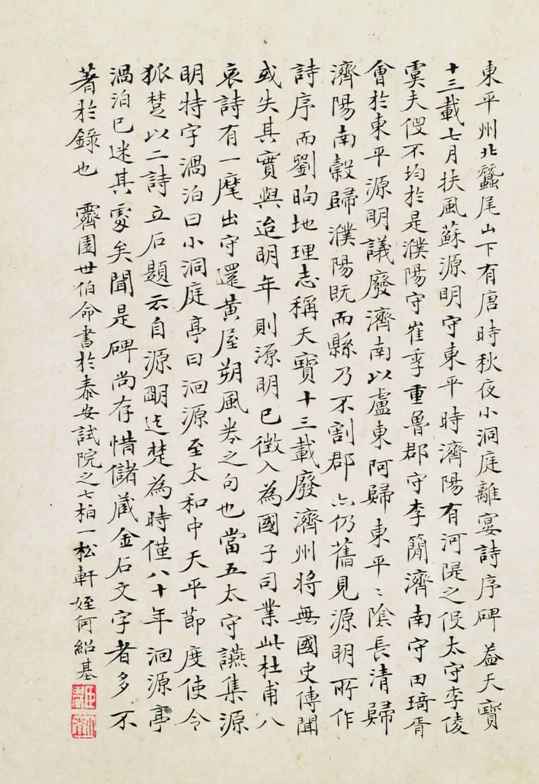 東平州北蠶尾山下有唐時秋夜小洞庭離宴詩序碑蓋天寶
十三載七月扶風蘇源明守東平時濟陽有河隄之役太守李倰
虞夫役不均於是濮陽守崔季重魯郡守李蘭濟南守田琦胥
會於東平源明議廢濟南以盧東阿歸東平〻陰長清歸
濟陽南穀歸濮陽既而縣乃不割郡亦仍舊見源明所作
詩序而劉昫地理志稱天寶十三載廢濟州將無國史傳聞
或失其實與迨明年則源明已徵入為國子司業此杜甫八
哀詩有一麾出守還黃屋朔風卷之句也當五太守讌集源
明特字渦泊曰小洞庭亭曰洄源至太和中天平節度使令
狐楚以二詩立石題云自源明迄楚為時僅八十年洄源亭
渦泊已迷其處矣聞是碑尚存惜儲藏金石文字者多不
著於錄也 霽園世伯命書於泰安試院之七柏一松軒姪何紹基